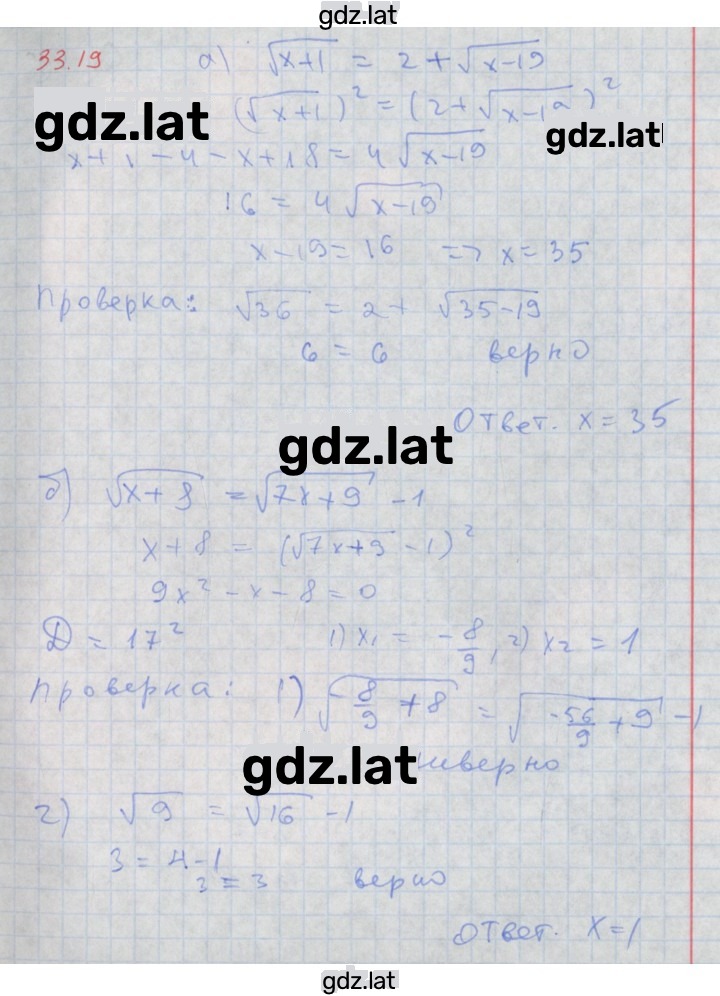 gdz.lat
33.19 а) √(x+1) = 2 + √(x-19)
gdz.lat
(√(x+1))² = (2+√(x-19))²
gdz.lat
x+1-4-x+18 = 4√(x-19)
16 = 4√(x-19)
x-19 = 16 => x = 35
Проверка: √36 = 2+ √(35-19)
6 = 6 верно
Ответ. x = 35
gdz.lat
б) √(x+8) = √(7x+9) -1
x+8 = (√(7x+9) -1)²
9x² - x - 8 = 0
D = 17² 1) x₁ = -8/9, 2) x₂ = 1
Проверка: 1) √(-8/9 +8) = √(-56/9 +9) -1
gdz.lat
неверно
2) √9 = √16 -1
3 = 4-1
3 = 3 верно
Ответ. x=1
gdz.lat